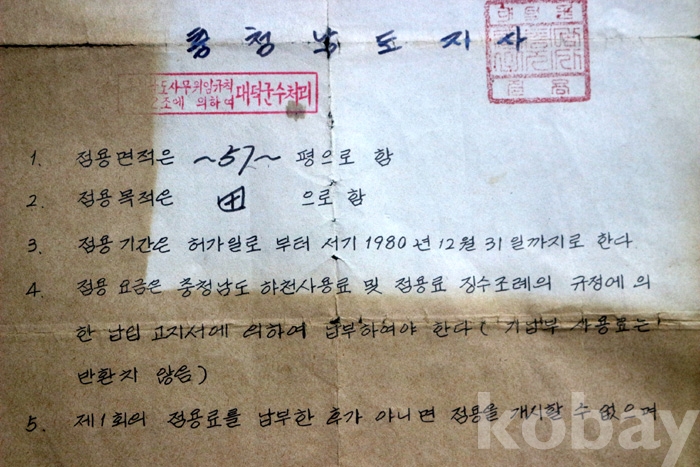 충청남도지사
도사무위임규칙
조에 의하여 대덕군수처리
1. 점용면적은 ~57~ 평으로 함
2. 점용목적은 田 으로 함
3. 점용기간은 허가일로 부터 서기 1980년 12월 31일까지로 한다
4. 점용 요금은 충청남도 하천사용료 및 점용료 징수조례의 규정에 의
한 납입 고지서에 의하여 납부하여야 한다 ( 기납부 사용료는
반환치 않음 )
5. 제1회의 점용료를 납부한 후가 아니면 점용을 개시할 수 없으며
kobay